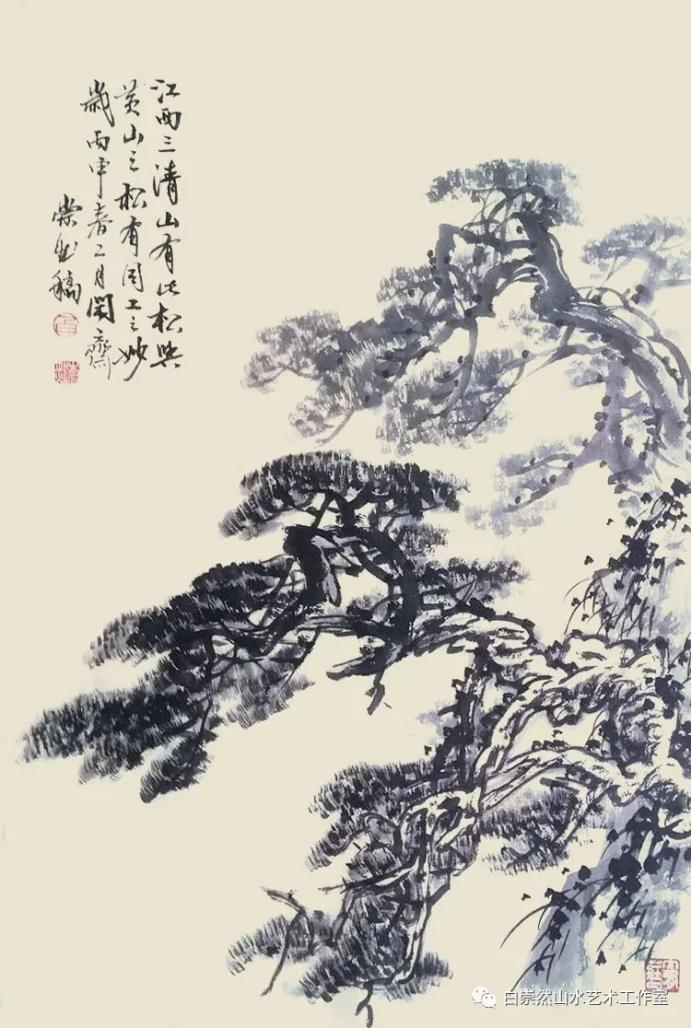 江西三清山有此松与
黄山之松有同工之妙
岁丙申春二月闲斋
崇然稿
白崇然山水艺术工作室